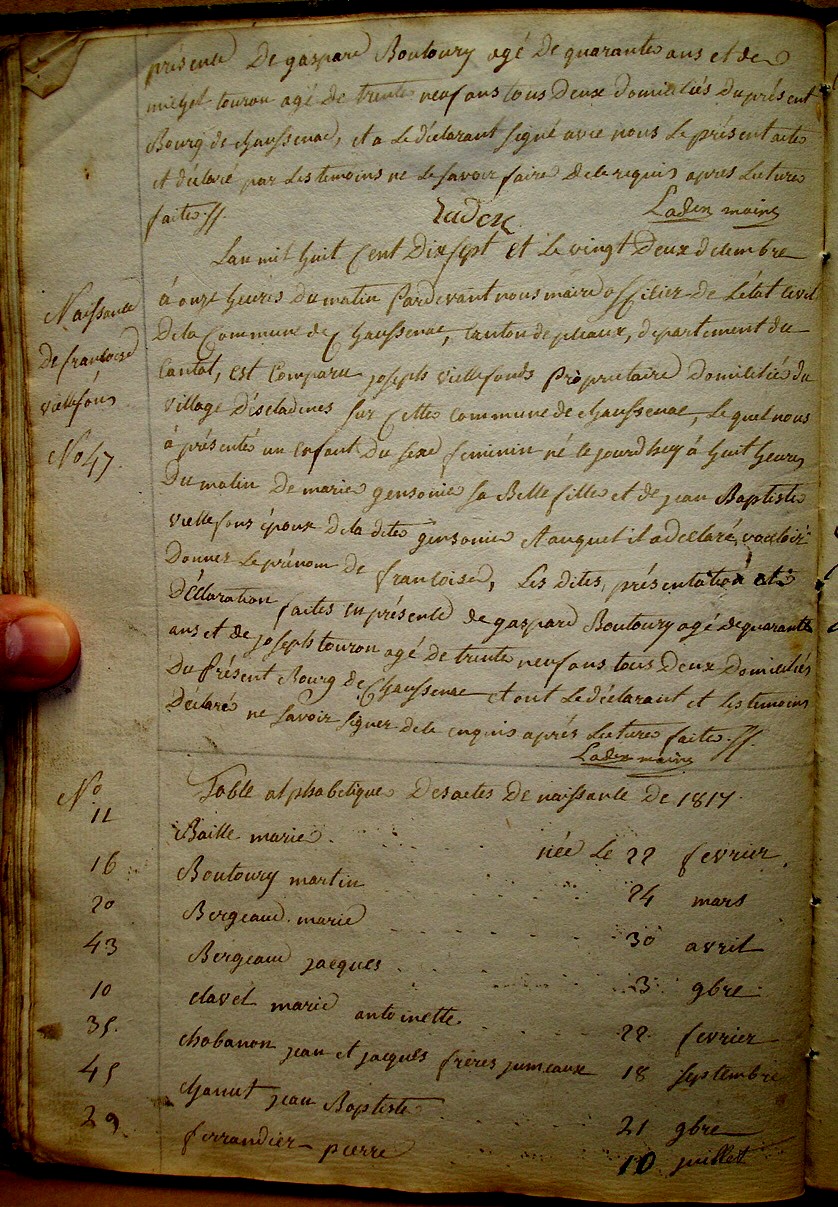 présence De gaspard Boutoury agé De quarante ans et de
michel touron agé De trente neuf ans tous Deux domiciliés Du présent
Bourg de chaussenac, et a Le déclarant signé avec nous Le présent acte
et déclaré par Les temoins ne Le savoir faire De ce requis apres Lecture
faite.//.
Laden maire
Lan mil huit Cent Dix sept et Le vingt Deux decembre
Naissance
De françoise
vieillefons
No 47.
à onze heures Du matin Pardevant nous maire officier De L'état Civil
De La Commune de Chaussenac, Canton de pleaux, département du
Cantal, est Comparu joseph vieillefonds Proprietaire Domicilié du
village D'escladines sur Cette commune de chaussenac, Lequel nous
à présenté un enfant Du sexe feminin né le jourdhuy à huit heures
Du matin De marie gensonie sa Belle fille et de jean Baptiste
vieillefons époux de la dite gensonie Auquel il a déclaré vouloir
Donner Le prénom de françoise, Les dites présentation et
Déclaration faites en présence de gaspard Boutoury agé de quarante
ans et de joseph touron agé De trente neuf ans tous Deux Domiciliés
Du Présent Bourg de Chaussenac et ont Le déclarant et les temoins
Déclaré ne Savoir signer de ce enquis aprés Lecture faite.//.
Laden maire
Table alphabetique Des actes De naissance De 1817.
No
11 Baille marie. née Le 22 fevrier.
16 Boutoury martin 24 mars
20 Bergeaud marie 30 avril
43 Bergeaud jacques 3 gbre
10 clavel marie antoinette 22 fevrier
35. chabanon jean et jacques frères jumeaux 18 septembre
45 chanut jean Baptiste 21 gbre
29 ferrandier pierre 10 juillet